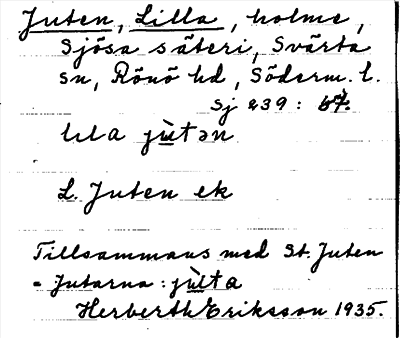 Juten, Lilla, holme,
Sjösa säteri, Svärta
sn, Rönö hd, Söderm. l.
Sj 239:
lıla jùtən
L. Juten ek
Tillsammans med St. Juten
= Jutarna: jùta
Herberth Eriksson 1935.